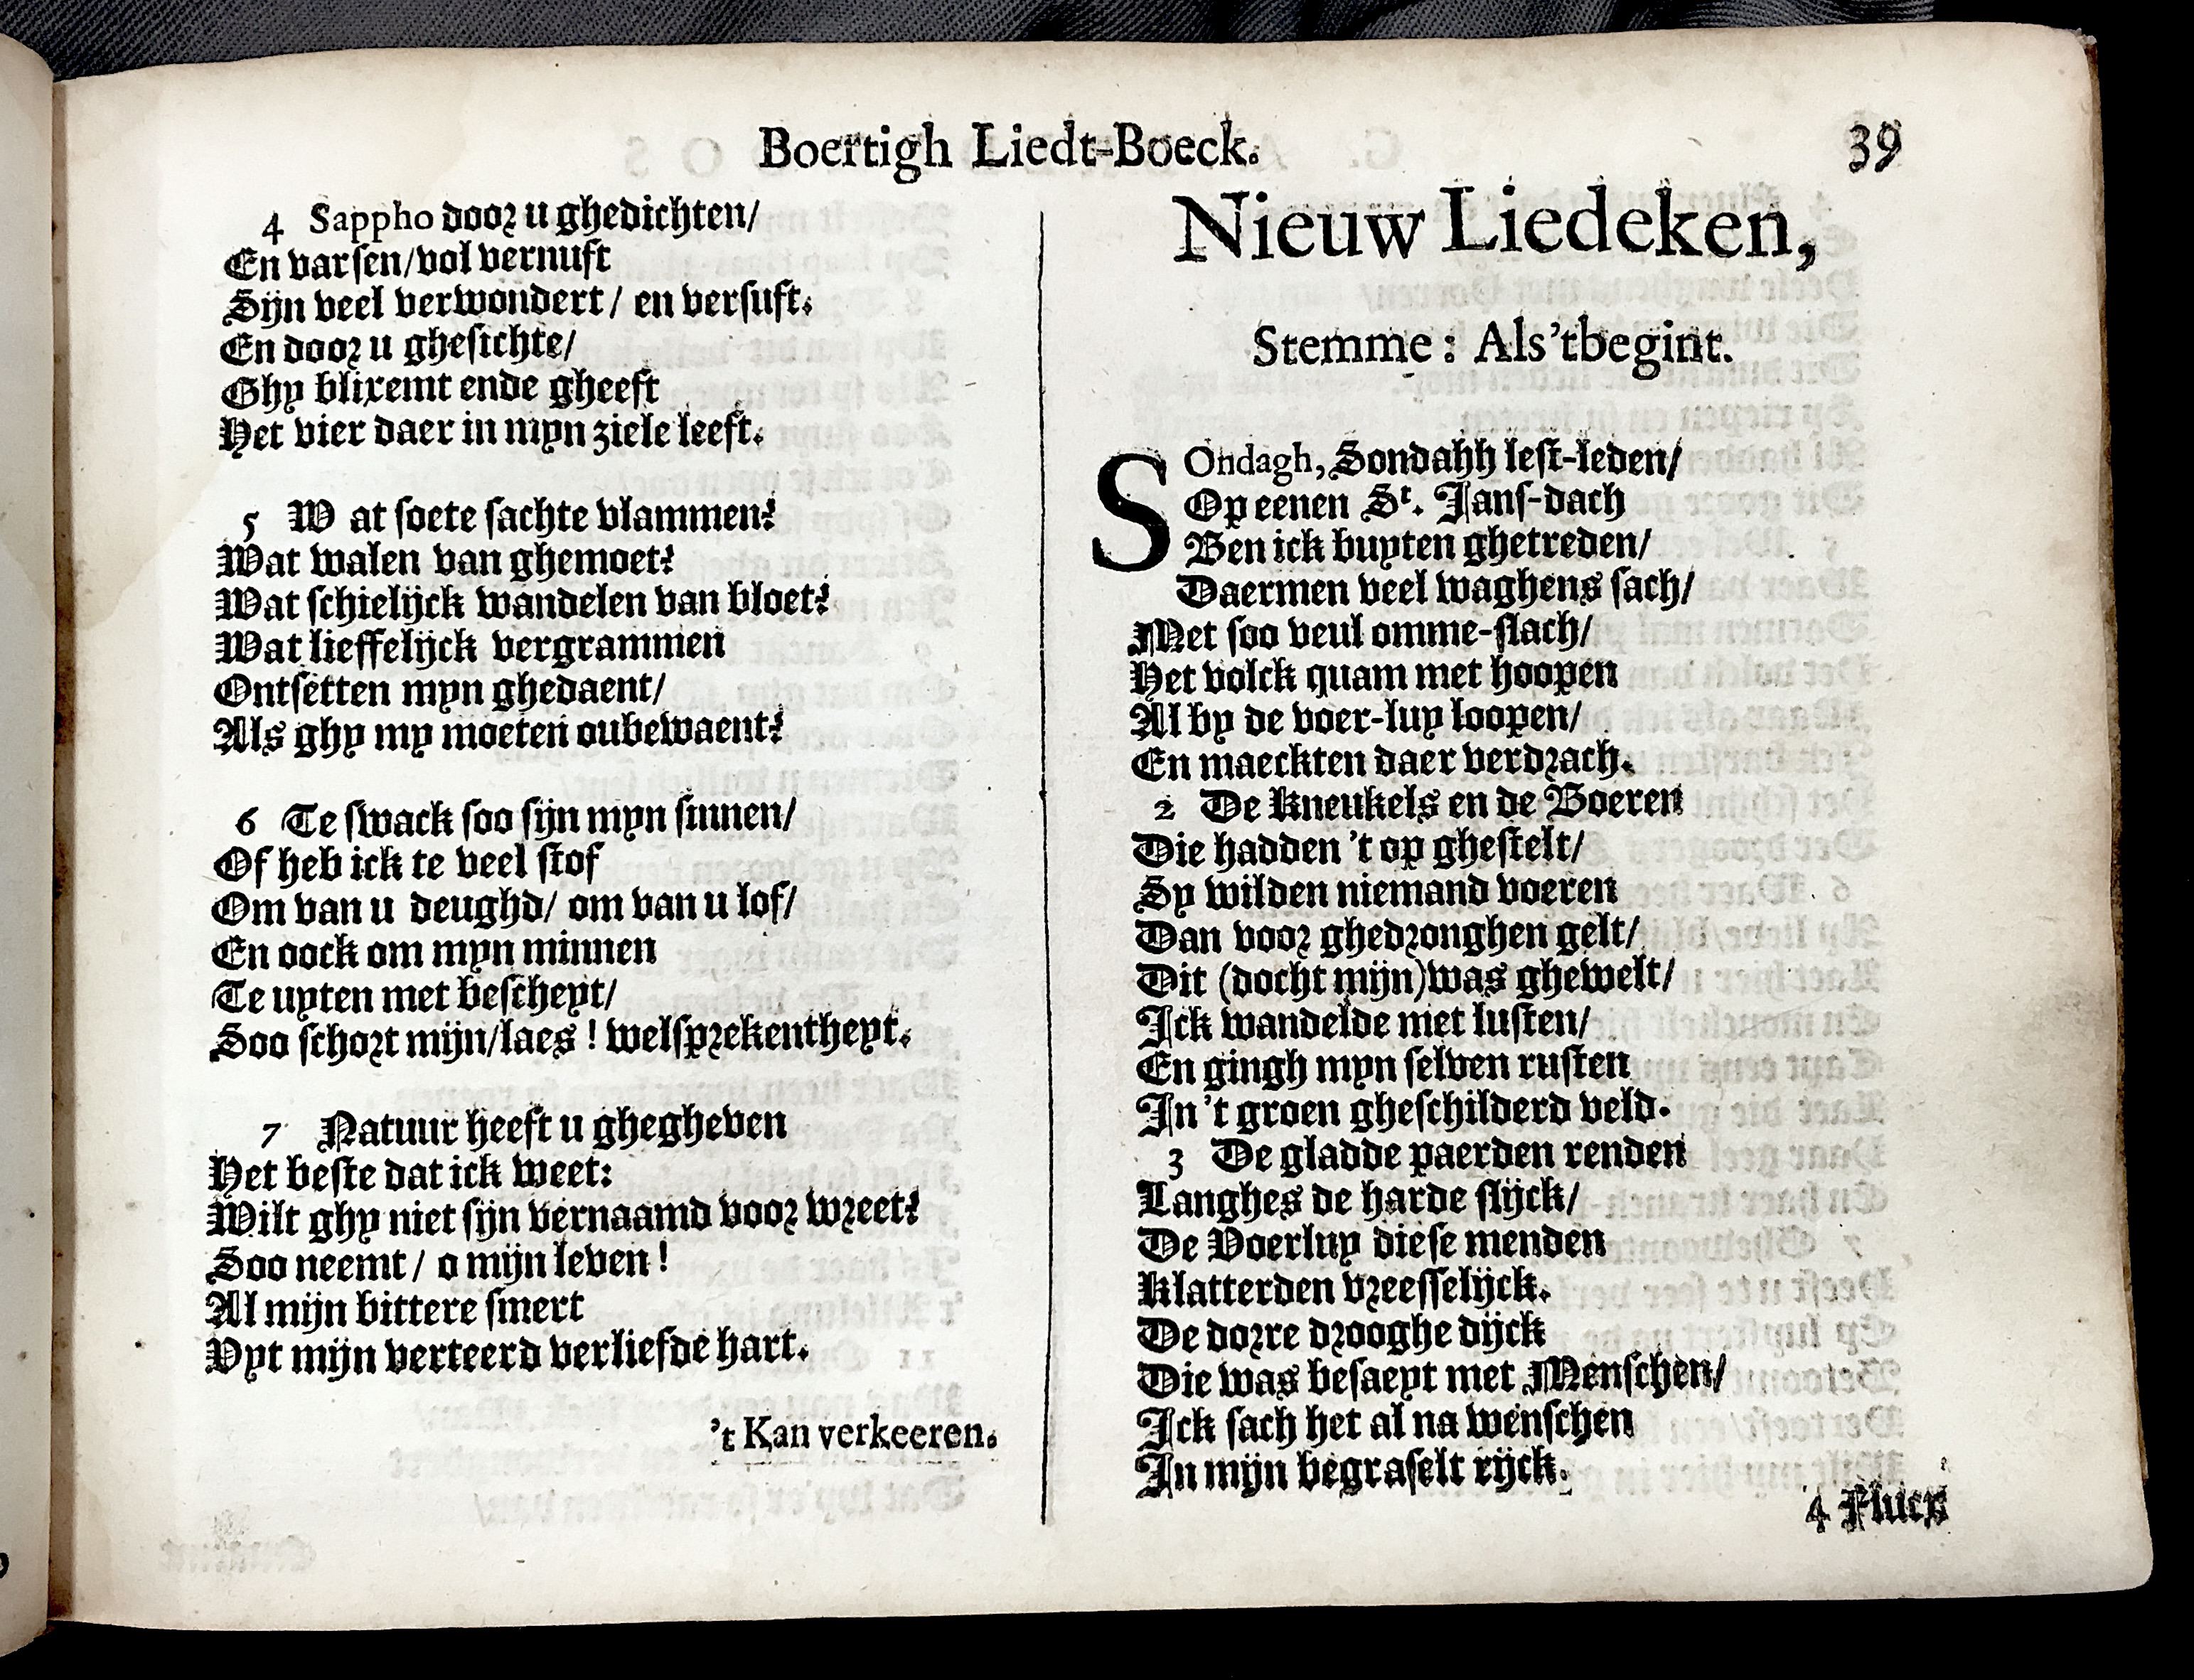 Boertigh Liedt-Boeck. 39
4 Sappho door u ghedichten/
En varsen/vol vernuft
Sijn veel verwondert/ en versuft.
En door u ghesichte/
Ghy blixemt ende gheeft
Het vier daer in myn ziele leeft.
5 W at soete sachte vlammen?
Wat walen van ghemoet?
Wat schielijck wandelen van bloet?
Wat lieffelijck vergrammen
Ontsetten myn ghedaent/
Als ghy my moeten oubewaent?
6 Te swack soo sijn myn sinnen/
Of heb ick te veel stof
Om van u deughd/ om van u lof/
En oock om myn minnen
Te uyten met bescheyt/
Soo schort mijn/laes! welsprekentheyt.
7 Natuur heeft u ghegheven
Het beste dat ick weet:
Wilt ghy niet sijn vernaamd voor wreet?
Soo neemt/ o mijn leven!
Al mijn bittere smert
Vyt mijn verteerd verliefde hart.
't Kan verkeeren.
Nieuw Liedeken,
Stemme: Als'tbegint.
SOndagh, Sondahh lest-leden/
Op eenen St. Jans-dach
Ben ick buyten ghetreden/
Daermen veel waghens sach/
Met soo veul omme-slach/
Het volck quam met hoopen
Al by de voer-luy loopen/
En maeckten daer verdrach.
2 De Kneukels en de Boeren
Die hadden 't op ghestelt/
Sy wilden niemand voeren
Dan voor ghedronghen gelt/
Dit (docht mijn)was ghewelt/
Ick wandelde met lusten/
En gingh myn selven rusten
In't groen gheschilderd veld.
3 De gladde paerden renden
Langhes de harde slijck/
De Voerluy diese menden
Klatterden vreesselijck.
De dorre drooghe dijck
Die was besaeyt met Menschen/
Ick sach het al na wenschen
In mijn begraselt rijck.
4 Flucx